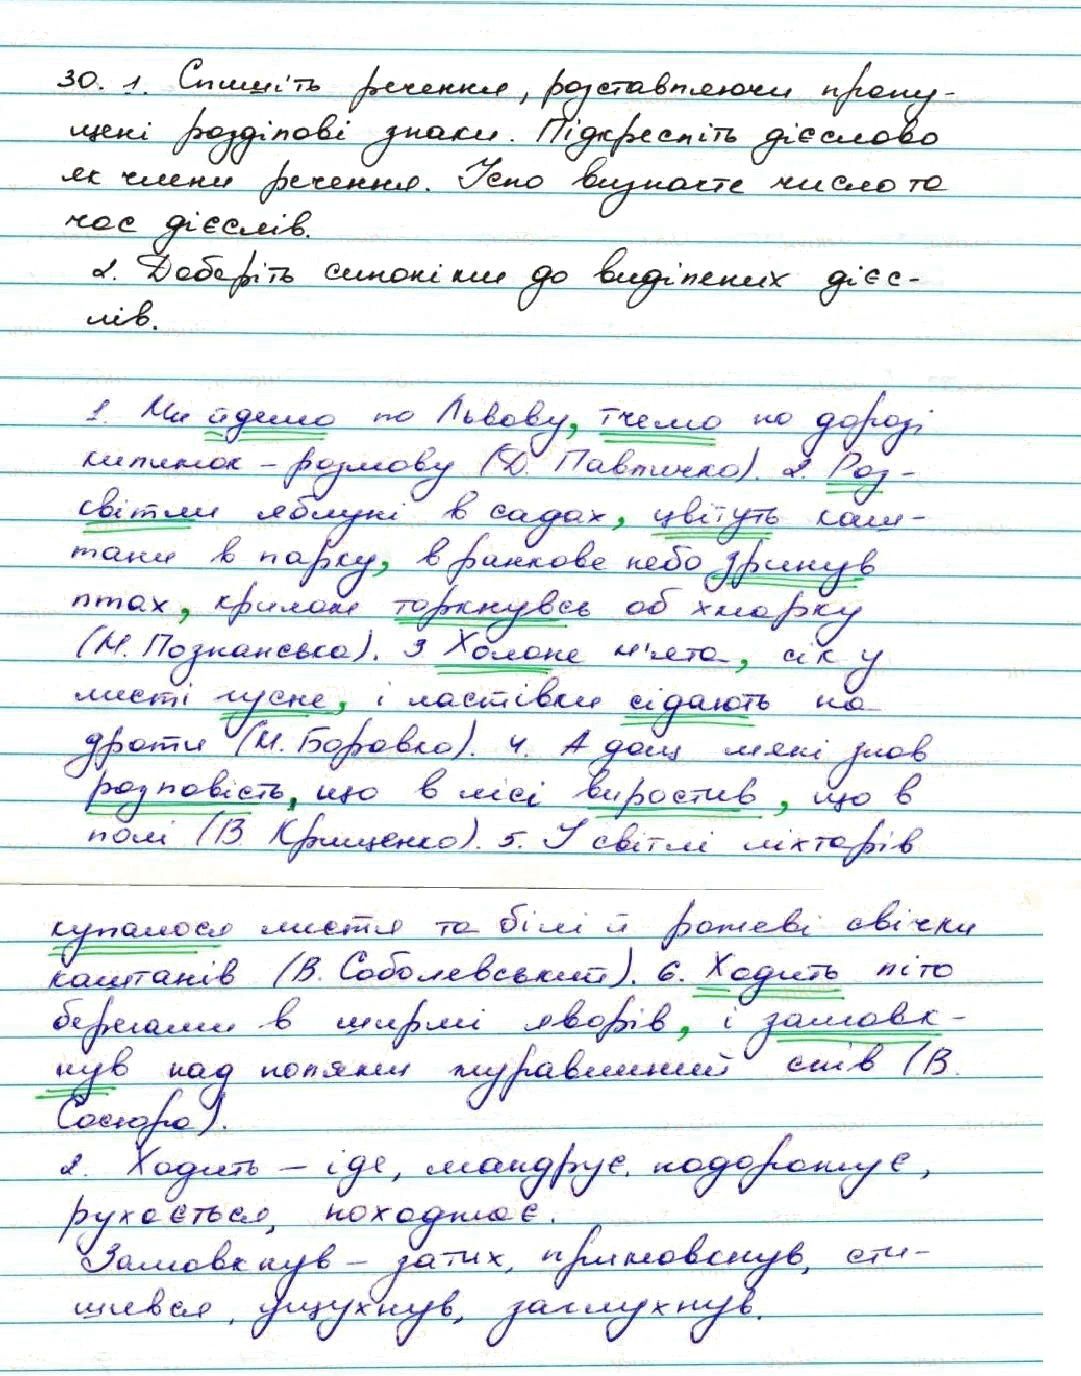 30. 1. Спишіть речення, розставляючи пропу-
щені розділові знаки. Підкресліть дієслово
як члени речення. Усно визначте число та
час дієслів.
2. Доберіть синоніми до виділених дієс-
лів.
1. Ми йдемо по Львову, тчемо по дорозі
килимок - розмову (Д. Павличко). 2. Роз-
світли яблуні в садах, цвітуть каш-
тани в парку, в ранкове небо зринув
птах, крилом торкнувсь об хмарку
(М. Познанська). 3 Холоне м'ята, сік у
листі гусне, і ластівки сідають на
дроти (М. Боровко). 4. А дощ мені знов
розповість, що в лісі виростив, що в
полі (В. Крищенко). 5. У світлі ліхтарів
купалося листя та білі й рожеві свічки
каштанів (В. Соболевський). 6. Ходить літо
берегами в ширмі яворів, і замовк-
нув над полями журавлиний спів (В.
Сосюра).
2. Ходить – іде, мандрує, подорожує,
рухається, походжає.
Замовкнув – затих, примовкнув, сти-
шився, ущухнув, заглухнув.